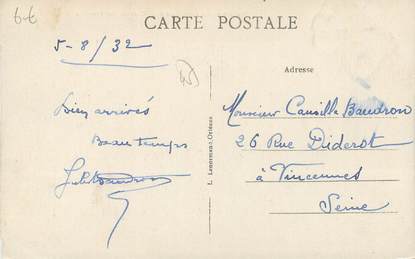 6-€
CARTE POSTALE
5-8/32
Adresse
Bien arrivés
Beau temps
L. Lenormand, Orléans
Monsieur Camille Baudron
26 Rue Diderot
à Vincennes
Seine